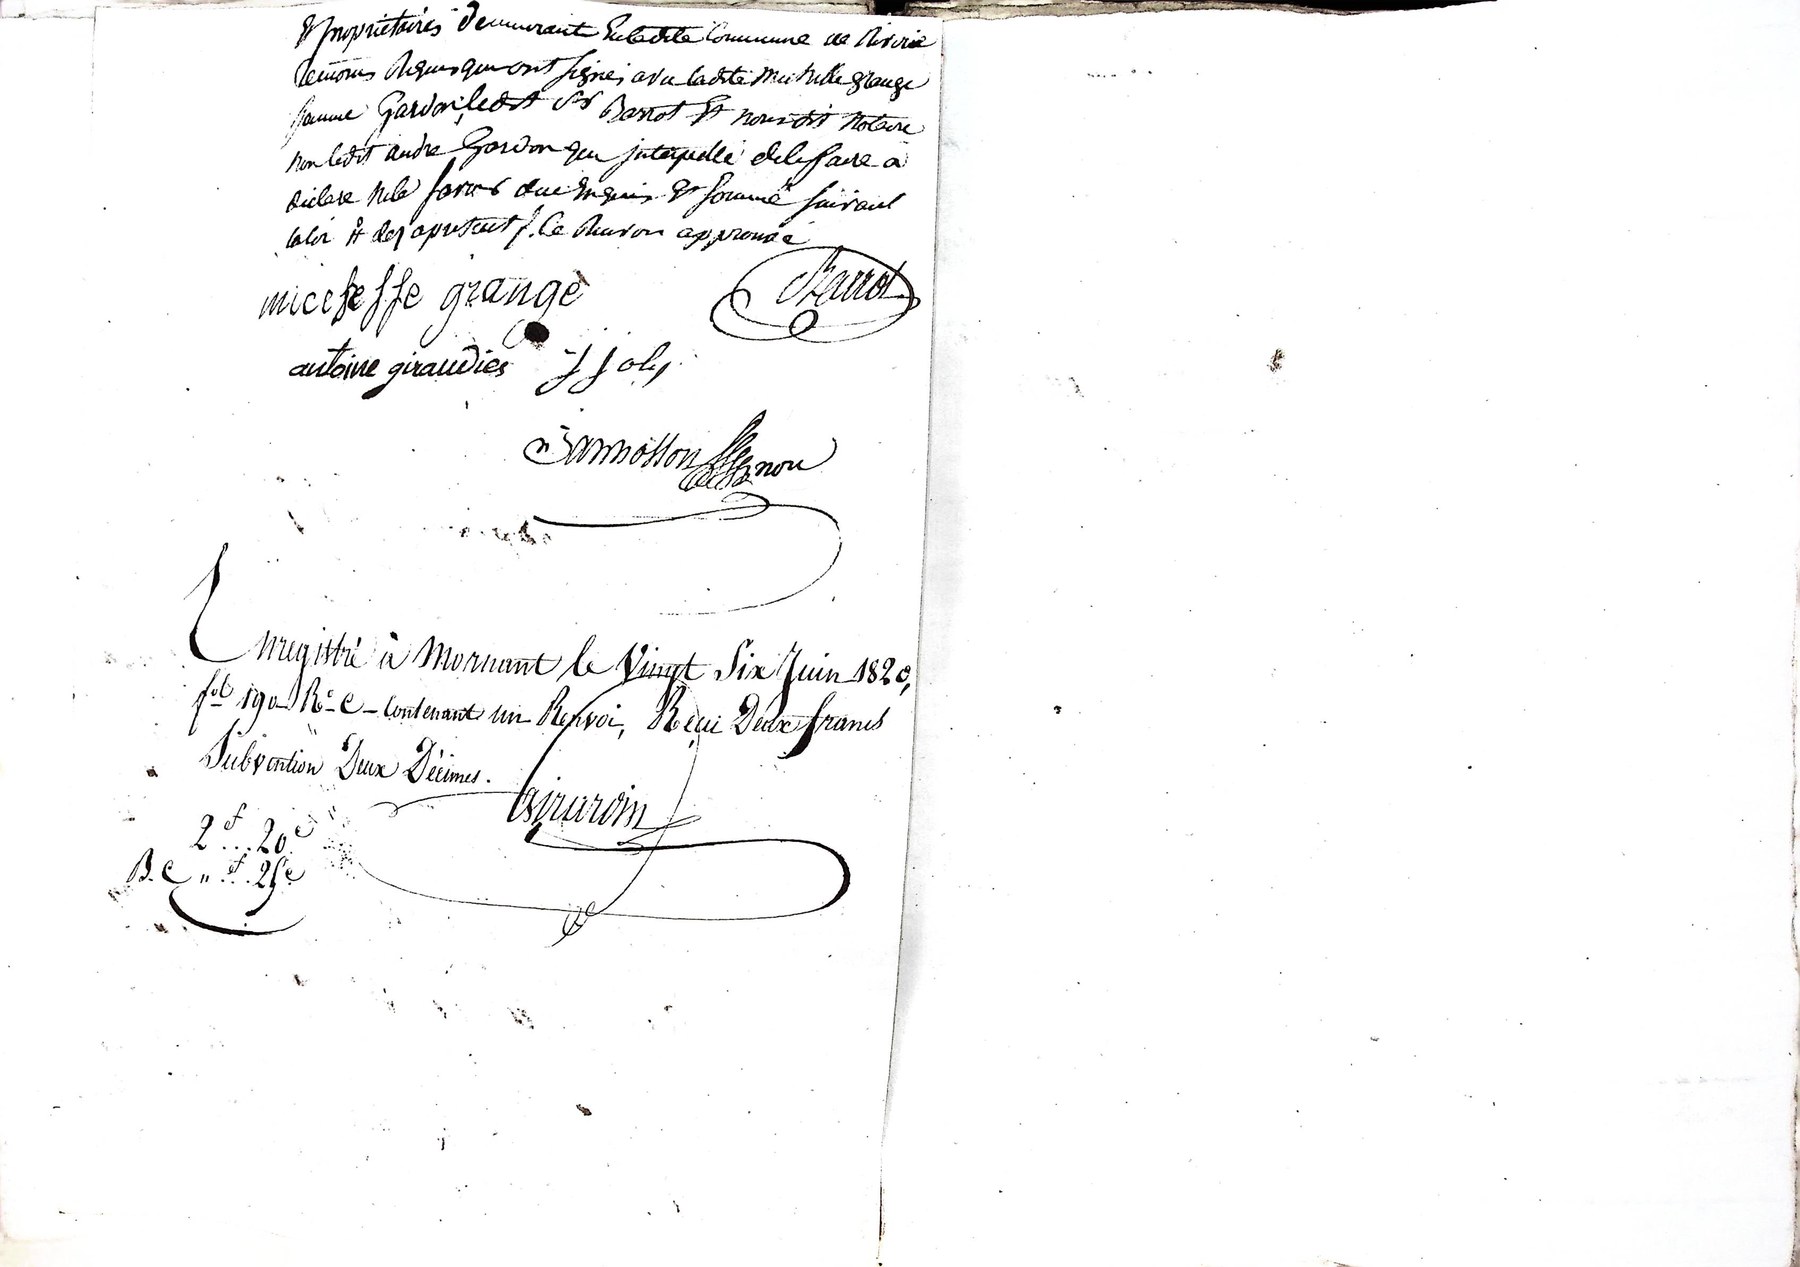 & propriétaires demeurant en ladite Commune de Riverie
témoins Requis qui ont signés avec ladite Michelle grange
femme Gardon, ledit Sr Barrot Et nousdit Notaire
non ledit andré Gardon qui interpellé de le faire a
déclaré ne le savoir due Enquis & sommé suivant
la loi Et des a present /. le Renvoi approuvé
micheffe grange Barrot
antoine giraudier JJ Joly
Jannosson nou
Enregistré à Mornant le Vingt Six Juin 1820,
fol 190 Ro C - Contenant un Renvoi, Reçu Deux francs
Subvention Deux Décimes.
Girardin
2f...20c
B.C " f...25c